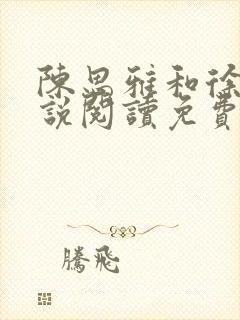 陳思雅和徐
說閱讀免費
騰飛